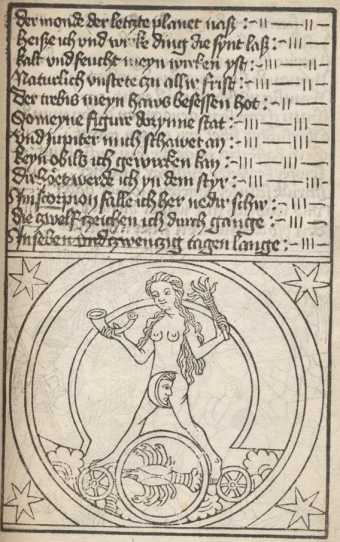 Der monde der letzte planet naß :~
Heiße ich vnd wirke ding die synt laß :~
Kalt vnd feucht meyn wirken yst :~
Naturlich vnstete czu aller frist :~
Der crebis meyn haws besessen hot :~
So meyne figur dorynne stat :~
Vnd Jupiter mich schawet an :~
Keyn obils ich gewirken kan :~
Dirhoet werde ich yn dem styr :~
Am scorpion falle ich her nedir schir :~
Die czwelf czeichen ich durch gange :~
In seben vnd czwenczig tagen lange :~